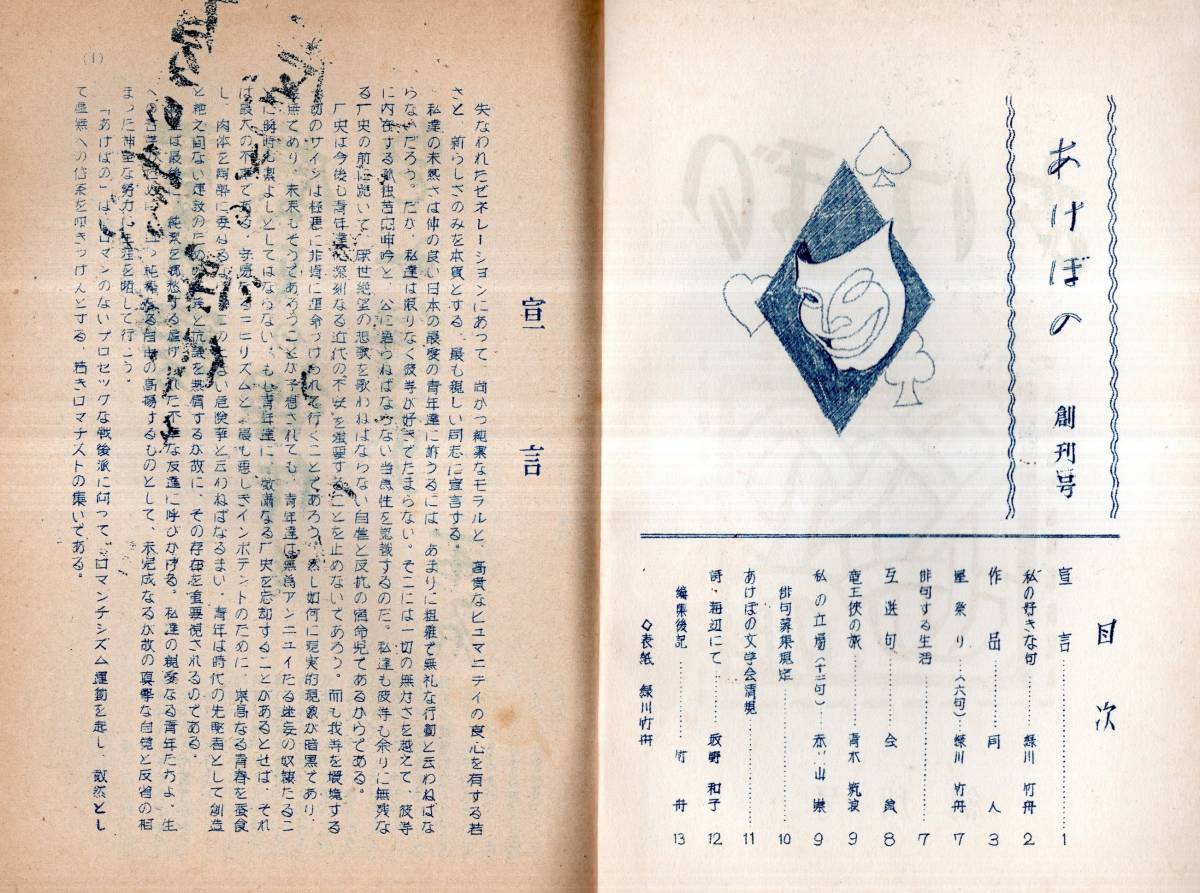 あけぼの 創刊号
目次
宣言……1
私の好きな句……緑川竹舟 2
作品……同人 3
星祭り(六句)……緑川竹舟 7
俳句する生活……7
互選句……会員 8
竜王侠の旅……青木 9
私の立場(十二句)……山 9
俳句募集規定……10
あけぼの文学会清規……11
詩・海辺にて……野和子 12
編集後記……竹舟 13
◇表紙 緑川竹舟
宣言
失なわれたゼネレーションにあって、尚かつ純潔なモラルと、高貴なヒユマニテイの良心を有する若
さと、新らしさのみを本質とする、最も親しい同志に宣言する。
私達の未熟さは仲の良い日本の最後の青年達に訴うるには、あまりに粗雑で無礼な行動と云わねばな
らないだろう。だが、私達は限りなく彼等が好きでたまらない。そこには一切の無力さを越えて、彼等
に内在する孤独苦悶呻吟と、公に語らねばならない当為性を認識するのだ。私達も彼等も余りに無残な
る厂史の前に跪いて、厭世絶望の悲歌を歌わねばならない自虐と反抗の宿命児であるからである。
厂史は今後も青年達に深刻なる近代の不安を強要することを止めないであろう。而も我等を愧塊する
初のワイシは極悪に非情に運命づけられて行くことであろう。然し如何に現実的現象が暗黒であり、
無であり、未来もそうであろうことが予想されても、青年達は無為アンニユイたる迷妄の奴隷たるこ
とに瞬時も潔よしとしてはならない。もし青年達に、厳粛なる厂史を忘却することがあるとせば、それ
は最大の不幸である。ニリズムと、最も悪しきインポテントのために、崇高なる青春を蚕食
し、肉体を 委ねる い危険華と云わねばなるまい。青年は時代の先駆者として創造
と絶え間ない建設のため と抗議を無償するが故に、その存在を重要視されるのである。
は最後に、純潔を郷愁する虐げられた不幸な友達に呼びかける。私達の親愛なる青年たちよ、生
への 純粋なる自由の高揚するものとして、未完成なるが故の真摯な自覚と反省の相
まった神聖な努力に生涯を賭して行こう。
「あけぼの」は、ロマンのないプロセツグな戦後派に向って、ロマンチシズム運動を起し、敢然とし
て虚無への信条を叩きつけんとする、若きロマチストの集いである。
(1)